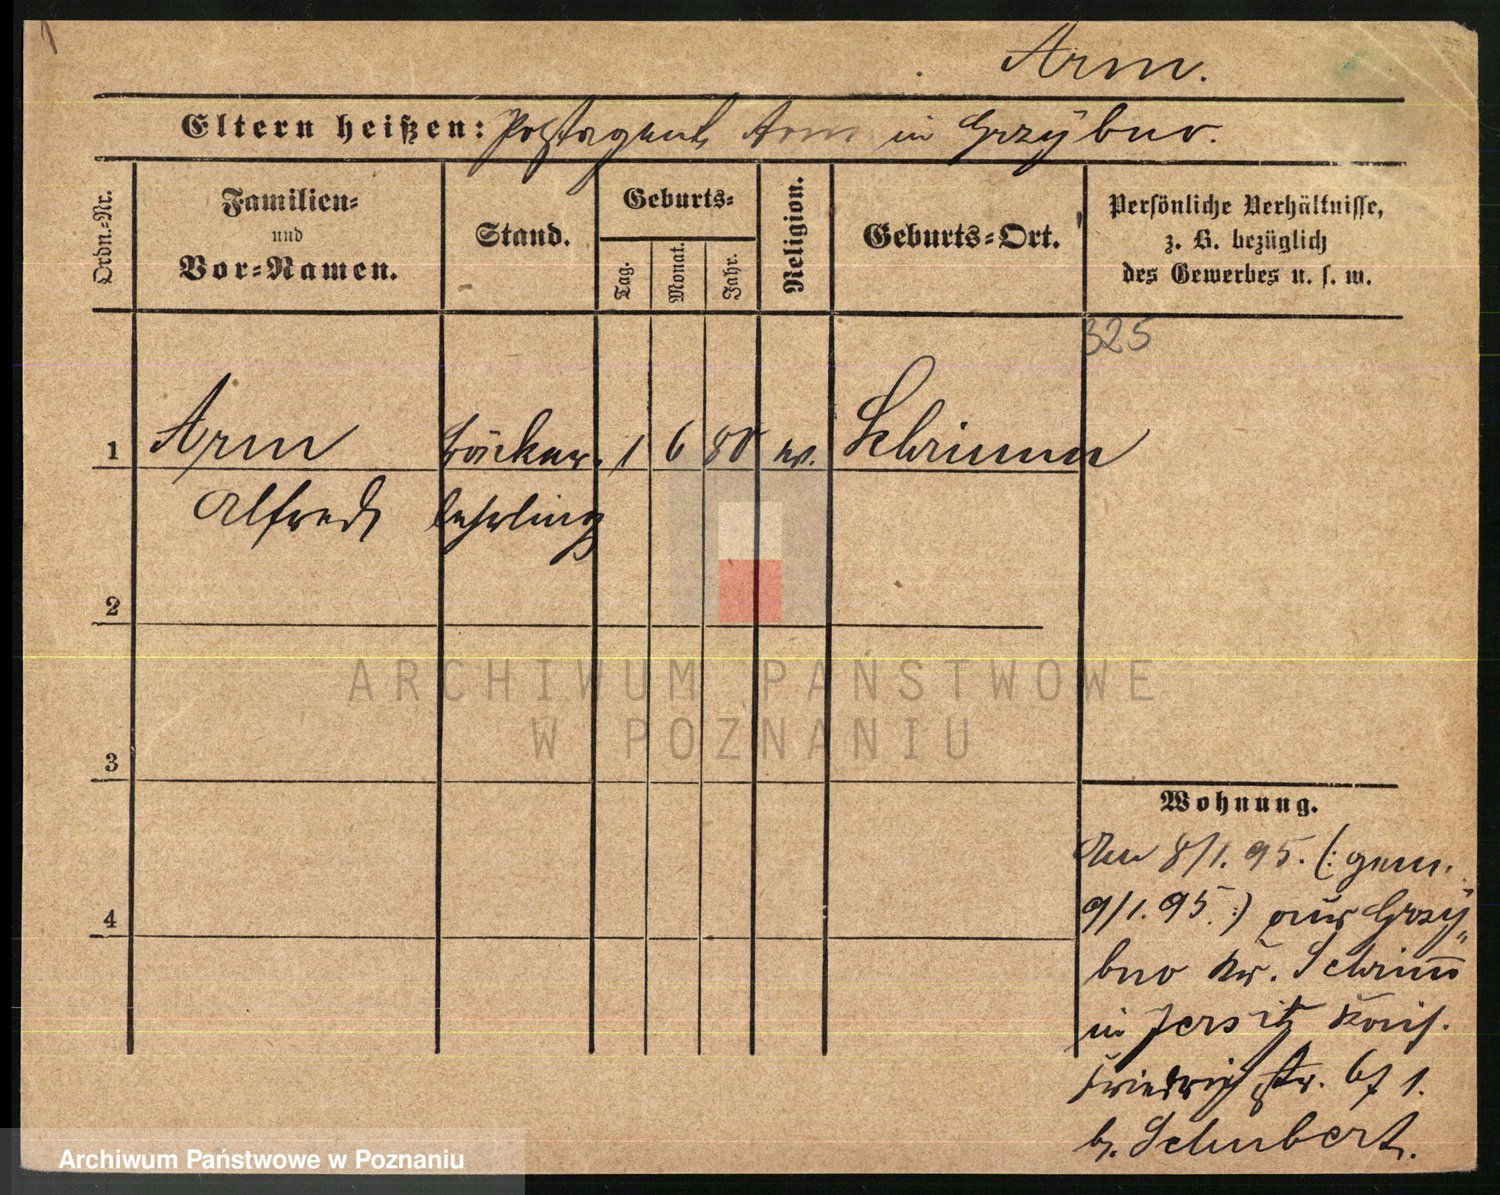 Arm.
Eltern heißen: Postagent Arm in Grzybno.
Ordn.-Nr.
Familien-
und
Vor-Namen.
Stand.
Geburts-
Tag.
Monat.
Jahr.
Religion.
Geburts-Ort.
Persönliche Verhältnisse,
z. B. bezüglich
des Gewerbes u. s. w.
325
1 Arm Bäcker- 1 6 80 ev. Schrimm
Alfred lehrling
2
3
4
Wohnung.
Am 8/1. 95. (: gem.
9/1. 95. :) aus Grzy„
bno Kr. Schrim̅
in Jersitz Kais.
Friedrich str. 1.
b. Schubert.
ARCHIWUM PAŃSTWOWE
W POZNANIU
Archiwum Państwowe w Poznaniu